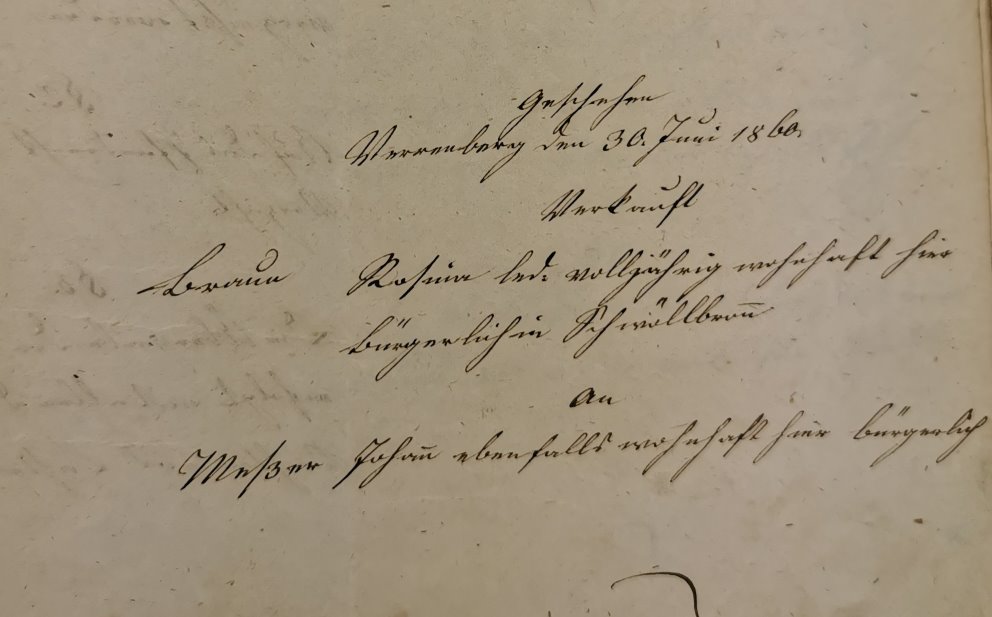 Geschehen
Verrenberg den 30. Juni 1860.
Verkauft
Braun Rosina led. volljährig wohnhaft hier
bürgerlich in Schwöllbron̄
An
Meßer Johan̄ ebenfalls wohnhaft hier bürgerlich